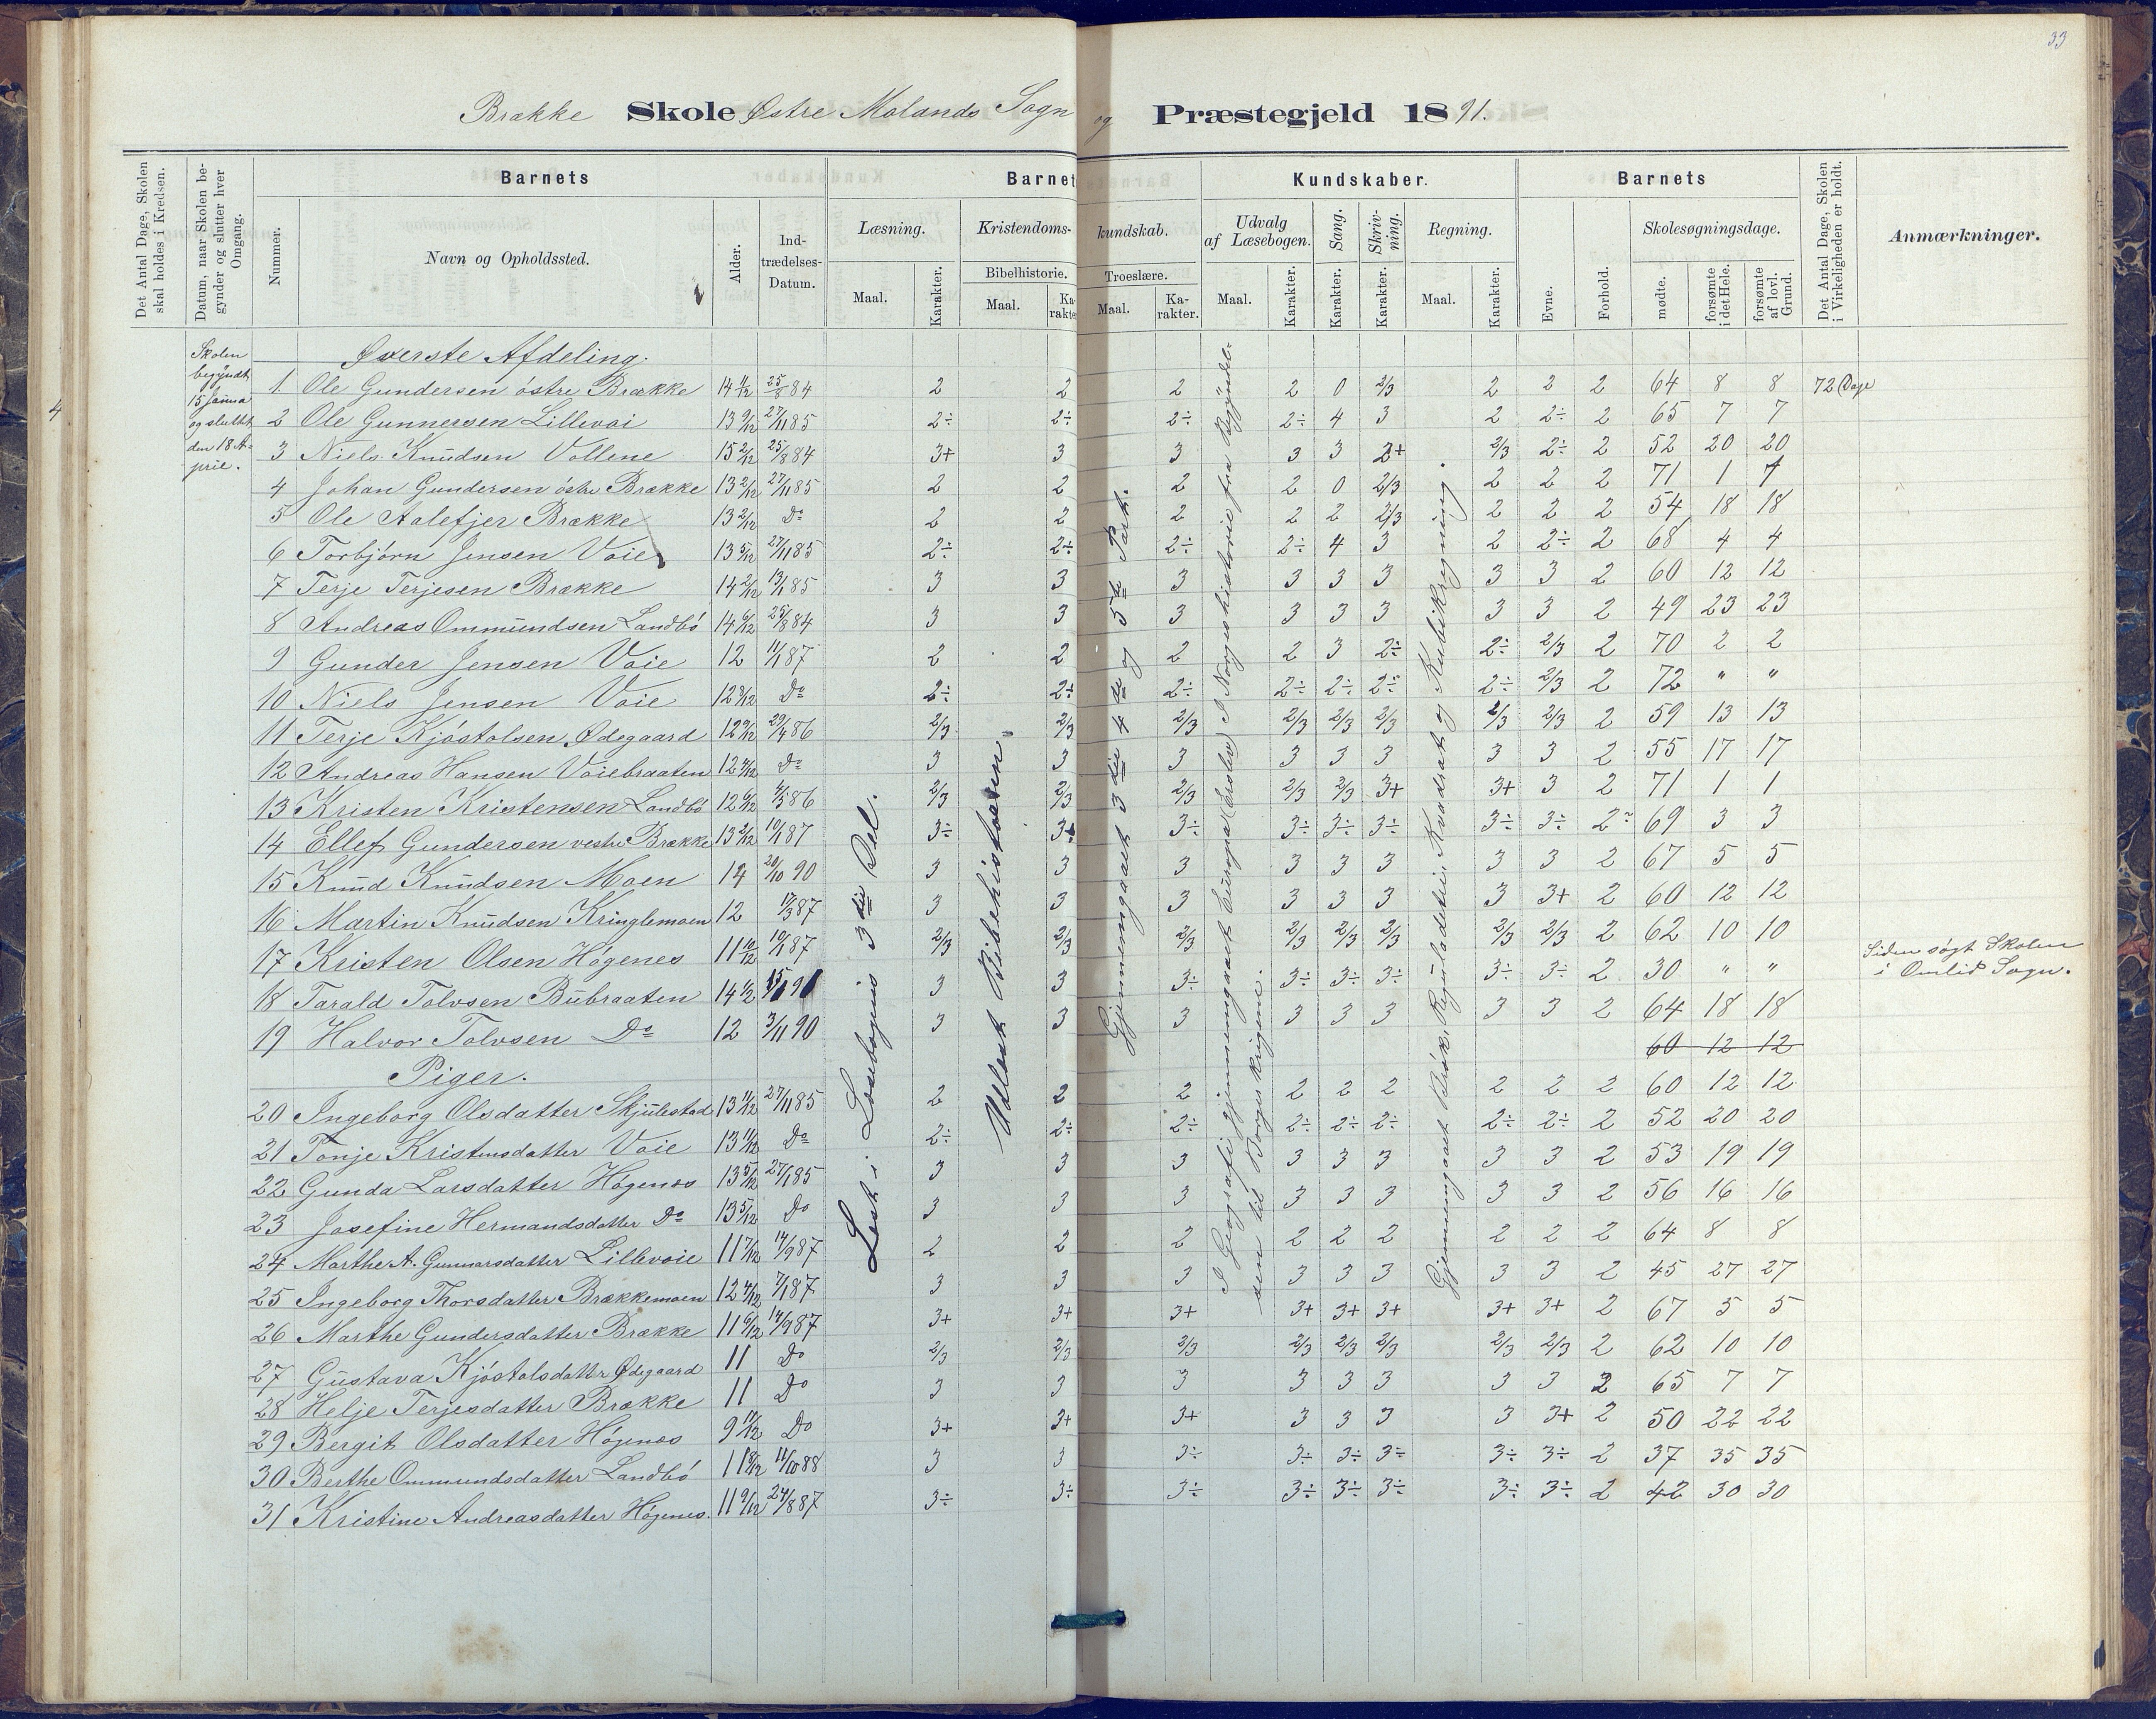 33
Brække Skole Østre Molands Sogn og Præstegjeld 1891.
Det Antal Dage, Skolen skal holdes i Kredsen.
Datum, naar Skolen begynder og slutter hver Omgang.
Barnets
Nummer.
Navn og Opholdssted.
Alder.
Indtrædelses-Datum.
Barnets Kundskaber.
Læsning.
Maal.
Karakter.
Kristendomskundskab.
Bibelhistorie.
Maal.
Karakter.
Troeslære.
Maal.
Karakter.
Udvalg af Læsebogen.
Maal.
Karakter.
Sang.
Karakter.
Skrivning.
Karakter.
Regning.
Maal.
Karakter.
Barnets
Evne.
Forhold.
Skolesøgningsdage.
mødte.
forsømte i det Hele.
forsømte af lovl. Grund.
Det Antal Dage, Skolen i Virkeligheden er holdt.
Anmærkninger.
4
Skolen
begyndt
15 Janua
og sluttet
den 18 A-
pril.
Øverste Afdeling.
1 Ole Gundersen östre Brække 14 11/12 25/8 84 2 2 2 2 0 2/3 2 2 2 64 8 8 72 Dage
2 Ole Gunnersen Lillevoi 13 9/12 27/11 85 2÷ 2÷ 2÷ 2÷ 4 3 2 2÷ 2 65 7 7
3 Niels Knudsen Vollene 15 2/12 25/8 84 3+ 3 3 3 3 2+ 2/3 2÷ 2 52 20 20
4 Johan Gundersen östre Brække 13 2/12 27/11 85 2 2 2 2 0 2/3 2 2 2 71 1 1
5 Ole Aalefjer Brække 13 2/12 Do 2 2 2 2 2 2/3 2 2 2 54 18 18
6 Torbjörn Jensen Voie 13 5/12 27/11 85 2÷ 2÷ 2÷ 2÷ 4 3 2 2÷ 2 68 4 4
7 Terje Terjesen Brække 14 2/12 13/1 85 3 3 3 3 3 3 3 3 2 60 12 12
8 Andreas Ommundsen Landbö 14 6/12 25/8 84 3 3 3 3 3 3 3 3 2 49 23 23
9 Gunder Jensen Voie 12 11/1 87 2 2 2 2 3 2÷ 2÷ 2/3 2 70 2 2
10 Niels Jensen Voie 12 8/12 Do 2÷ 2÷ 2÷ 2÷ 2÷ 2÷ 2÷ 2/3 2 72 " "
11 Terje Kjöstolsen Ødegaard 12 9/12 29/4 86 2/3 2/3 2/3 2/3 2/3 2/3 2/3 2/3 2 59 13 13
12 Andreas Hansen Voiebraaten 12 4/12 Do 3 3 3 3 3 3 3 3 2 55 17 17
13 Kristen Kristensen Landbö 12 6/12 4/5 86 2/3 2/3 2/3 2/3 2/3 3+ 3+ 3 2 71 1 1
14 Ellef Gundersen vestre Brække 13 2/12 10/1 87 3÷ 3÷ 3÷ 3÷ 3÷ 3÷ 3÷ 3÷ 2 69 3 3
15 Knud Knudsen Moen 14 20/10 90 3 3 3 3 3 3 3 3 2 67 5 5
16 Martin Knudsen Kringlemoen 12 17/3 87 3 3 3 3 3 3 3 3+ 2 60 12 12
17 Kristen Olsen Högenes 11 10/12 10/1 87 2/3 2/3 2/3 2/3 2/3 2/3 2/3 2/3 2 62 10 10
18 Tarald Tolvsen Bubraaten 14 1/2 3 3 3÷ 3÷ 3÷ 3÷ 3÷ 3÷ 2 30 " " Siden søgt Skolen
i Omlid Sogn.
19 Halvor Tolvsen Do 12 3/11 90 3 3 3 3 3 3 3 3 2 64 18 18
60 12 12
Piger.
20 Ingeborg Olsdatter Skjulestad 13 11/12 27/11 85 2 2 2 2 2 2 2 2 2 60 12 12
21 Tonje Kristensdatter Voie 13 11/12 Do 2÷ 2÷ 2÷ 2÷ 2÷ 2÷ 2÷ 2÷ 2 52 20 20
22 Gunda Larsdatter Högenes 13 5/12 27/1 85 3 3 3 3 3 3 3 3 2 53 19 19
23 Josefine Hermandsdatter Do 13 5/12 Do 3 3 3 3 3 3 3 3 2 56 16 16
24 Marthe A. Gunnarsdatter Lillevoie 11 7/12 14/9 87 2 2 2 2 2 2 2 2 2 64 8 8
25 Ingeborg Thorsdatter Brækkemoen 12 4/12 7/1 87 3 3 3 3 3 3 3 3 2 45 27 27
26 Marthe Gundersdatter Brække 11 6/12 14/9 87 3+ 3+ 3+ 3+ 3+ 3+ 3+ 3+ 2 67 5 5
27 Gustava Kjöstolsdatter Ødegaard 11 Do 2/3 2/3 2/3 2/3 2/3 2/3 2/3 2/3 2 62 10 10
28 Helje Terjesdatter Brække 11 Do 3 3 3 3 3 3 3 3 2 65 7 7
29 Bergit Olsdatter Högenes 9 11/12 Do 3+ 3+ 3+ 3 3 3 3 3+ 2 50 22 22
30 Berthe Ommundsdatter Landbö 11 8/12 11/10 88 3 3 3÷ 3÷ 3÷ 3÷ 3÷ 3÷ 2 37 35 35
31 Kristine Andreasdatter Högenes. 11 9/12 24/8 87 3÷ 3÷ 3÷ 3÷ 3÷ 3÷ 3÷ 3÷ 2 42 30 30
Læst i Læsebogens 3die Del.
Udlæst Bibelhistorien.
Gjennemgaaet 3die 4de og 5te Part.
I Geografi gjennemgaaet Europa (Erslev) I Norgeshistorie fra Begyndel-
sen til Borgerkrigene.
Gjennemgaaet Brök, Reguladetri, Kvadrat og Kubikregning.